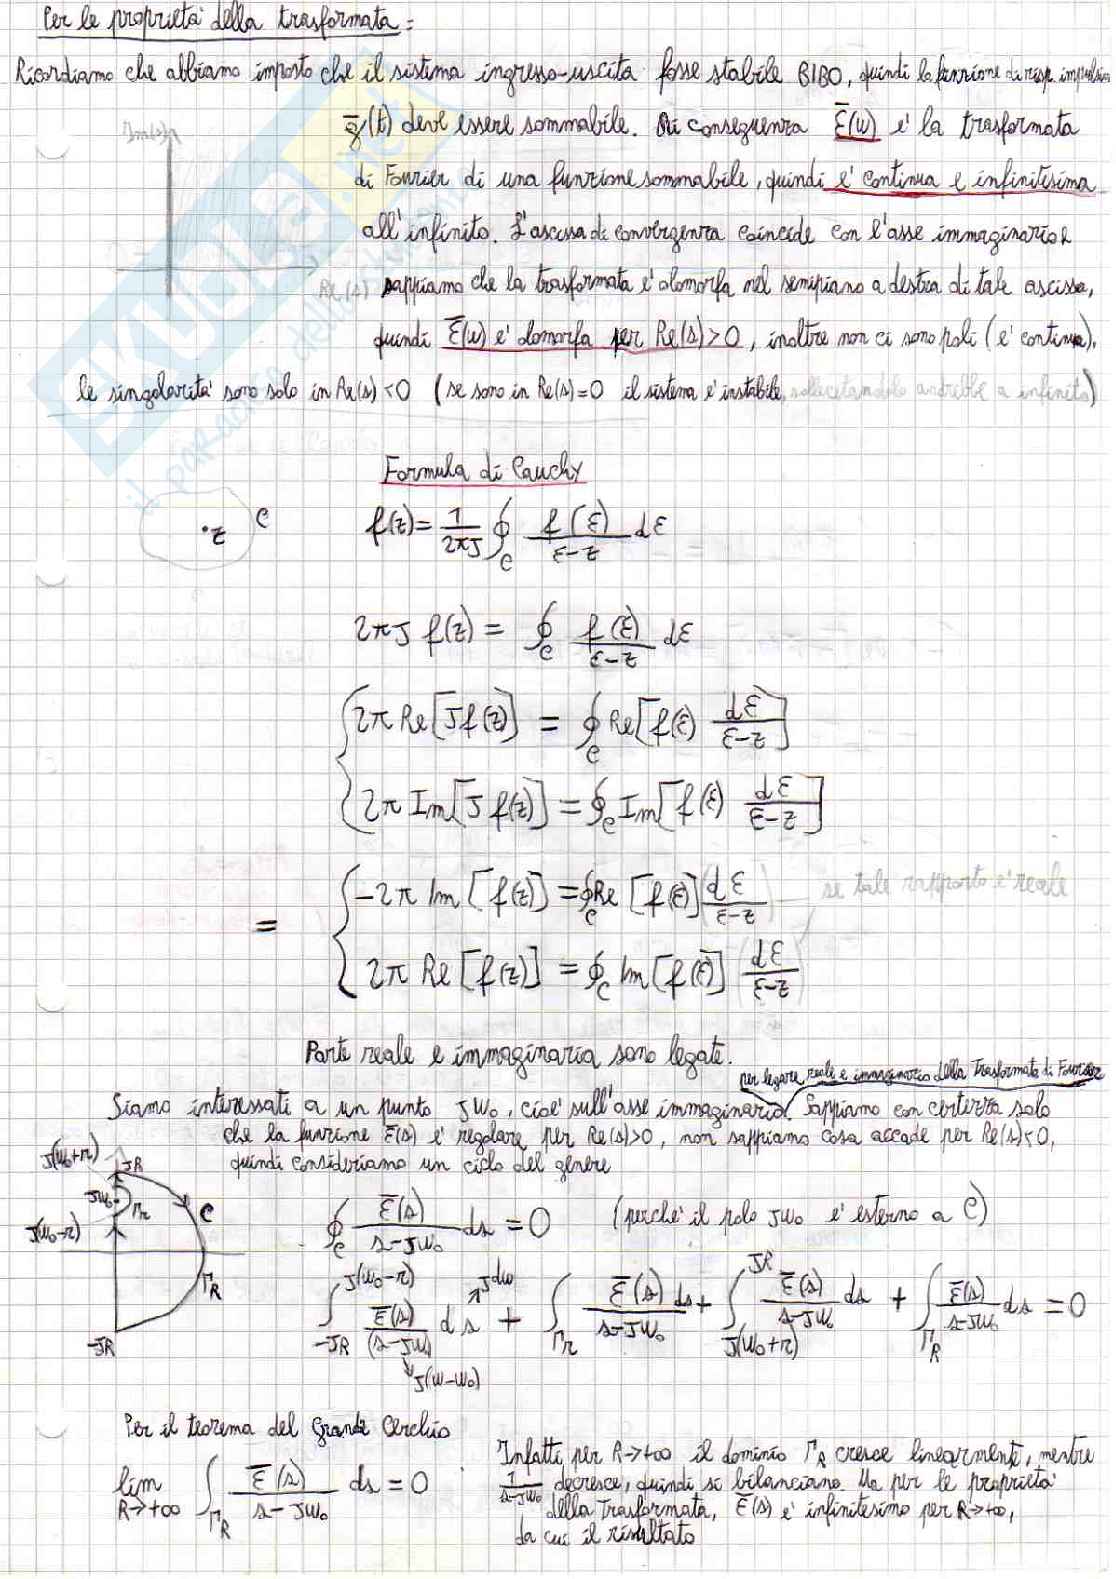 Per le proprietà della trasformata:
Ricordiamo che abbiamo imposto che il sistema ingresso-uscita fosse stabile BIBO, quindi la funzione di risp. impulsiva
g̅(t) deve essere sommabile. Di conseguenza ε̅(ω) e' la trasformata
Im(s)
di Fourier di una funzione sommabile, quindi e' continua e infinitesima
all'infinito. L'ascissa di convergenza coincide con l'asse immaginario e
Re(s) sappiamo che la trasformata e' olomorfa nel semipiano a destra di tale ascissa,
quindi ε̅(ω) e' olomorfa per Re(s)>0, inoltre non ci sono poli (e' continua).
le singolarita' sono solo in Re(s)<0 (se sono in Re(s)=0 il sistema e' instabile, sollecitandolo andrebbe a infinito)
Formula di Cauchy
.z C f(z) = 1/2πJ ∮_C f(ε)/(ε-z) dε
2πJ f(z) = ∮_C f(ε)/(ε-z) dε
{ 2π Re[J f(z)] = ∮_C Re[f(ε) dε/(ε-z)]
2π Im[J f(z)] = ∮_C Im[f(ε) dε/(ε-z)]
= { -2π Im[f(z)] = ∮_C Re[f(ε)] (dε/(ε-z)) se tale rapporto e' reale
2π Re[f(z)] = ∮_C Im[f(ε)] (dε/(ε-z))
Parte reale e immaginaria sono legate.
per legare reale e immaginario della Trasformata di Fourier
Siamo interessati a un punto Jω₀, cioe' sull'asse immaginario. Sappiamo con certezza solo
che la funzione ε̅(s) e' regolare per Re(s)>0, non sappiamo cosa accade per Re(s)<0,
quindi consideriamo un ciclo del genere
J(ω₀+r) JR
Jω₀ Γr C
J(ω₀-r)
ΓR
-JR
∮_C ε̅(s)/(s-Jω₀) ds = 0 (perche' il polo Jω₀ e' esterno a C)
∫_{-JR}^{J(ω₀-r)} ε̅(s)/(s-Jω₀) ds + ∫_{Γr} ε̅(s)/(s-Jω₀) ds + ∫_{J(ω₀+r)}^{JR} ε̅(s)/(s-Jω₀) ds + ∫_{ΓR} ε̅(s)/(s-Jω₀) ds = 0
Jdω
J(ω-ω₀)
Per il teorema del Grande Cerchio
lim R→+∞ ∫_{ΓR} ε̅(s)/(s-Jω₀) ds = 0
Infatti per R→+∞ il dominio ΓR cresce linearmente, mentre
1/(s-Jω₀) decresce, quindi si bilanciano. Ma per le proprieta'
della Trasformata, ε̅(s) e' infinitesimo per R→+∞,
da cui il risultato
SKUOLA.net
il paradiso dello studente